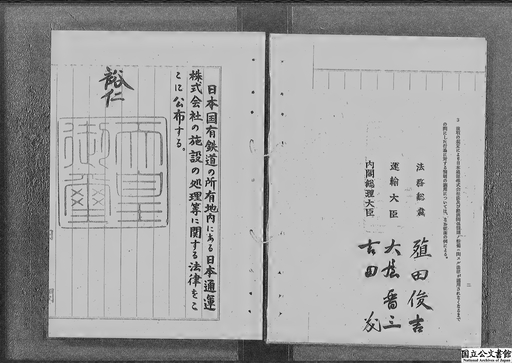 法務総裁 殖田俊吉
運輸大臣 大屋晋三
内閣総理大臣 吉田茂
日本国有鉄道の所有地内にある日本通運
株式会社の施設の処理等に関する法律をこ
こに公布する。
裕仁
天皇
御璽
国立公文書館
National Archives of Japan